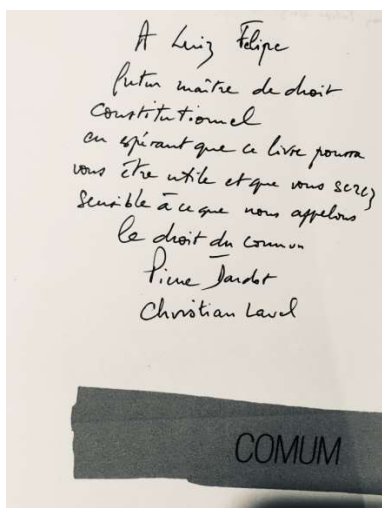 A Luiz Felipe
futur maître de droit
constitutionnel
en espérant que ce livre pourra
vous être utile et que vous serez
sensible à ce que nous appelons
le droit du commun
Pierre Dardot
Christian Laval
COMUM